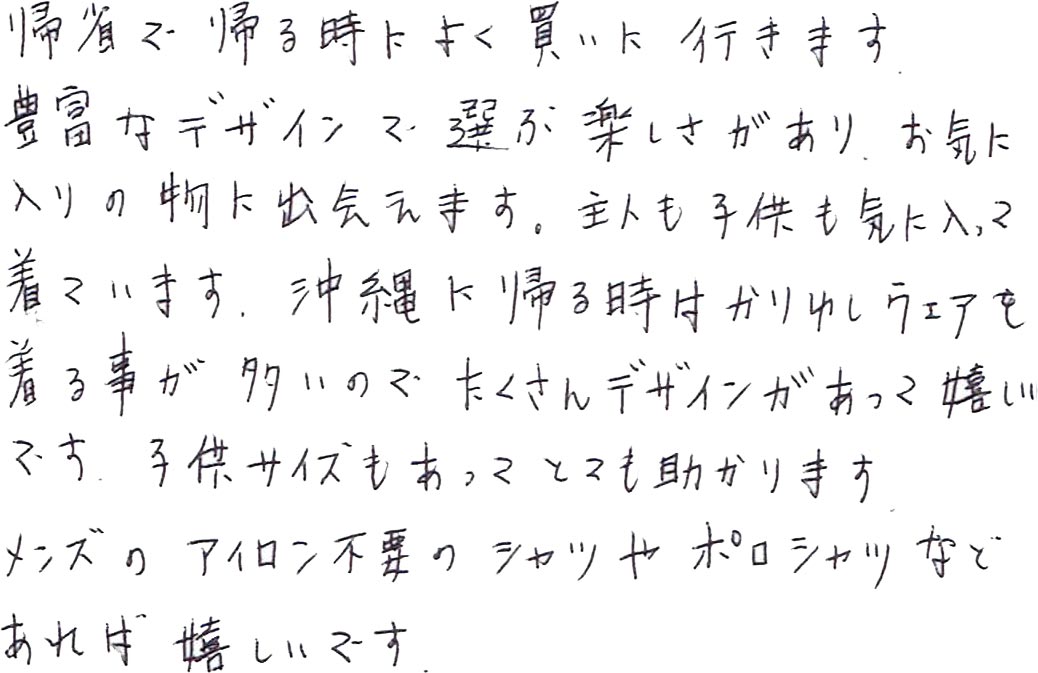 帰省で帰る時によく買いに行きます.
豊富なデザインで選ぶ楽しさがあり.お気に
入りの物に出会えます。主人も子供も気に入って
着ています.沖縄に帰る時はかりゆしウェアを
着る事が多いのでたくさんデザインがあって嬉しい
です.子供サイズもあってとても助かります
メンズのアイロン不要のシャツやポロシャツなど
あれば嬉しいです.